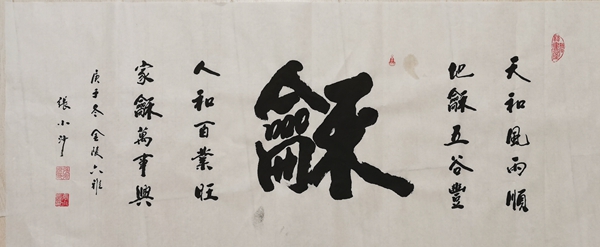 天和風雨順
地龢五谷豐
龢
人和百業旺
家龢萬事興
庚子冬金陵
張小